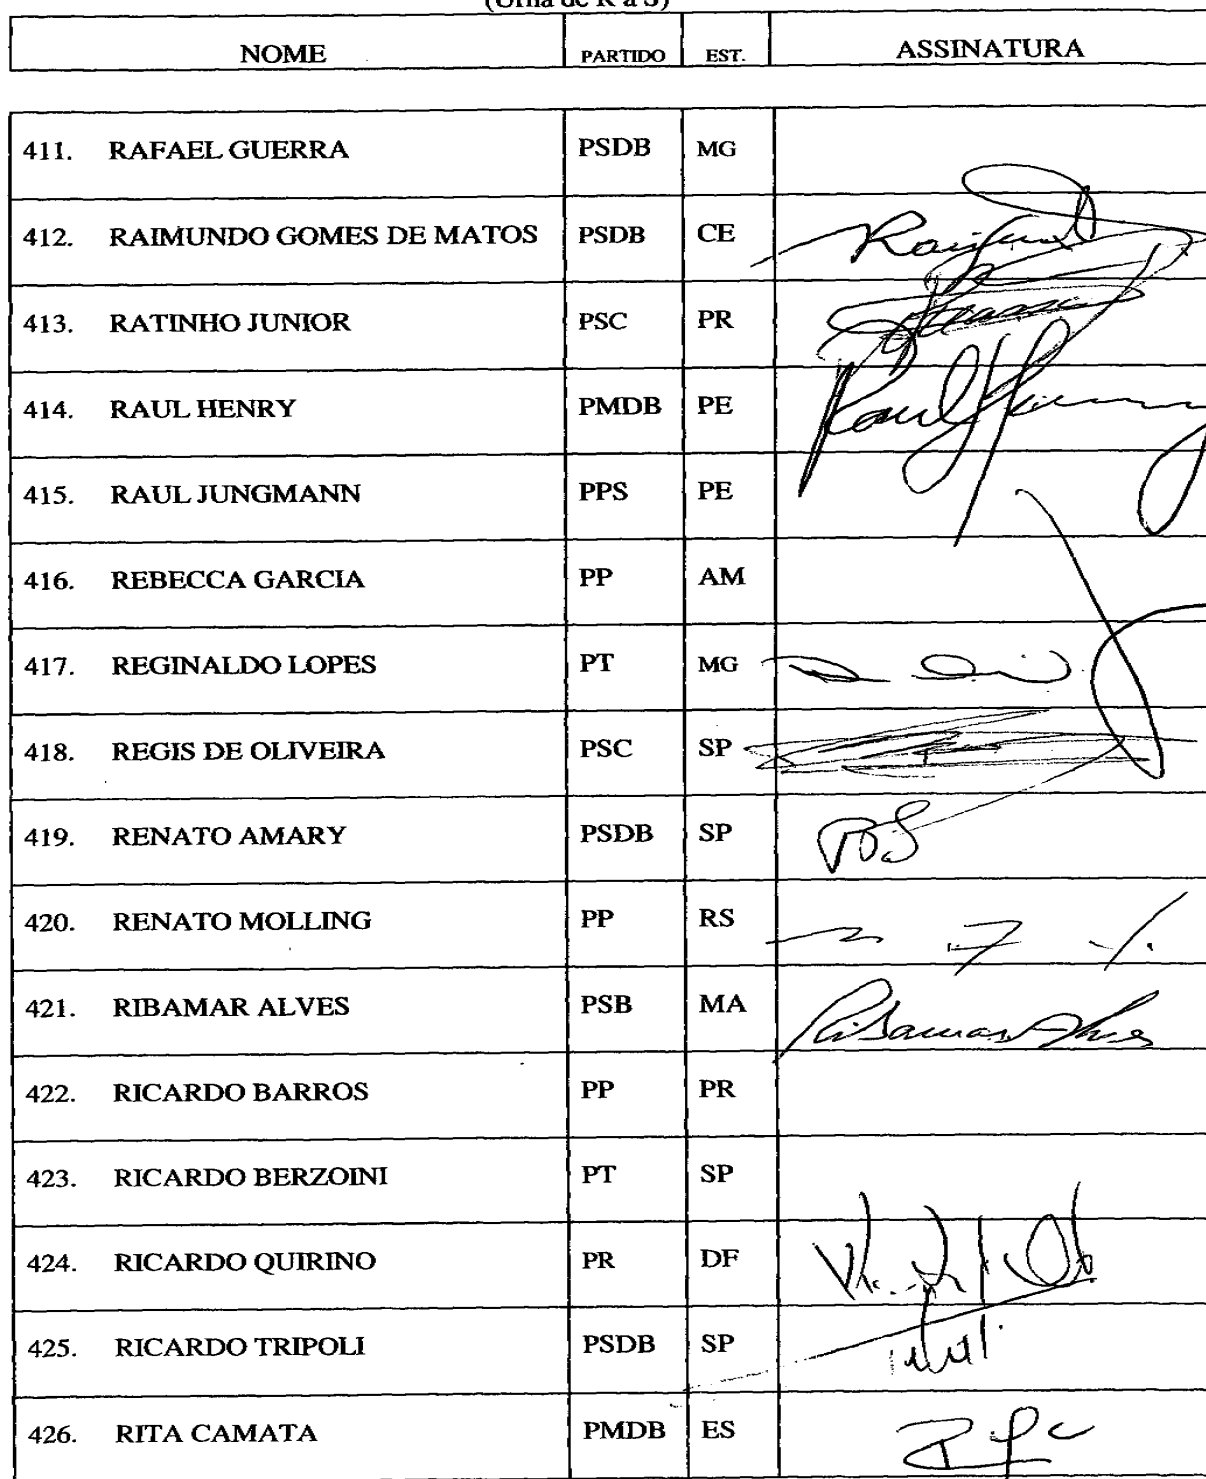 (Urna de R a S)
NOME PARTIDO EST. ASSINATURA
411. RAFAEL GUERRA PSDB MG
412. RAIMUNDO GOMES DE MATOS PSDB CE
413. RATINHO JUNIOR PSC PR
414. RAUL HENRY PMDB PE Raul Henry
415. RAUL JUNGMANN PPS PE
416. REBECCA GARCIA PP AM
417. REGINALDO LOPES PT MG
418. REGIS DE OLIVEIRA PSC SP
419. RENATO AMARY PSDB SP
420. RENATO MOLLING PP RS
421. RIBAMAR ALVES PSB MA Ribamar Alves
422. RICARDO BARROS PP PR
423. RICARDO BERZOINI PT SP
424. RICARDO QUIRINO PR DF
425. RICARDO TRIPOLI PSDB SP
426. RITA CAMATA PMDB ES